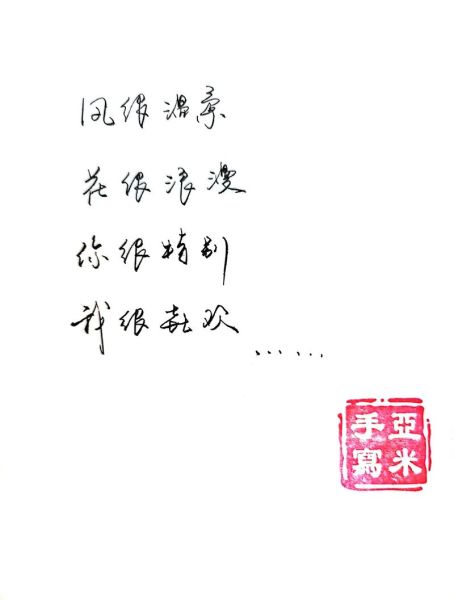 风很温柔
花很浪漫
你很特别
我很喜欢……
亞米
手寫